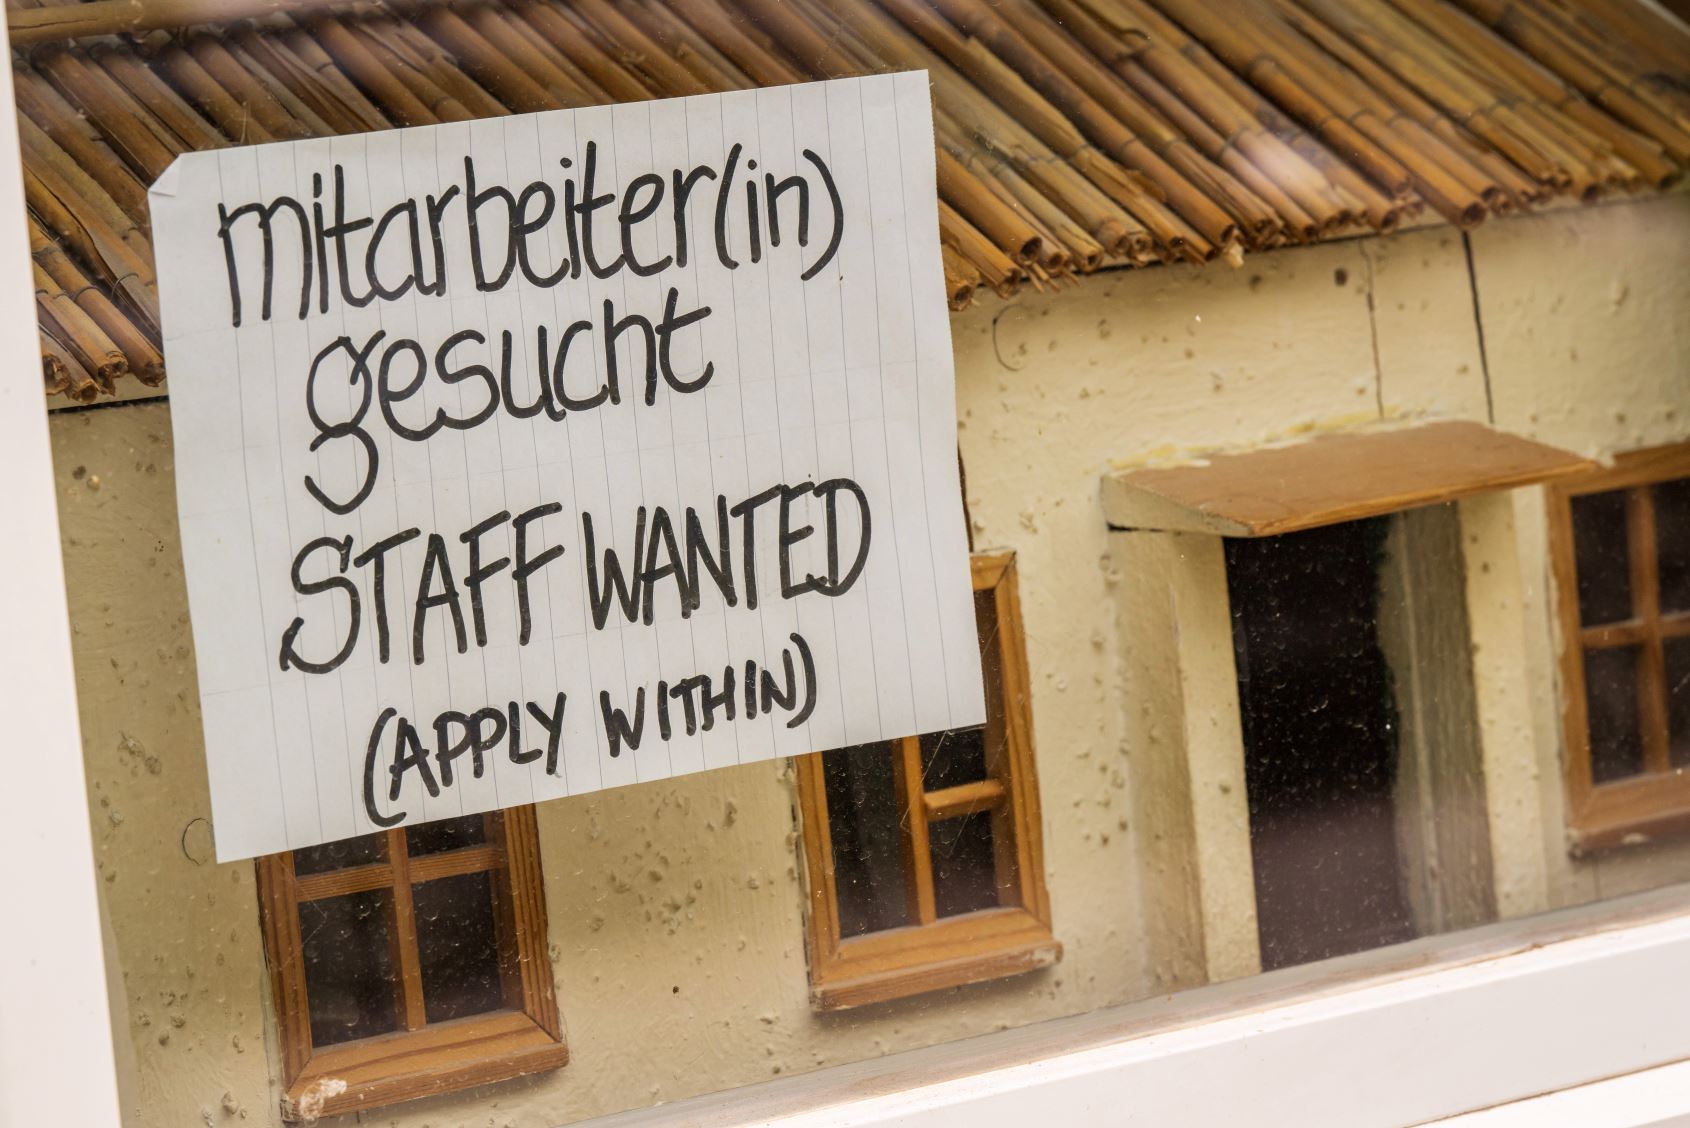 mitarbeiter(in)
gesucht
STAFF WANTED
(APPLY WITHIN)